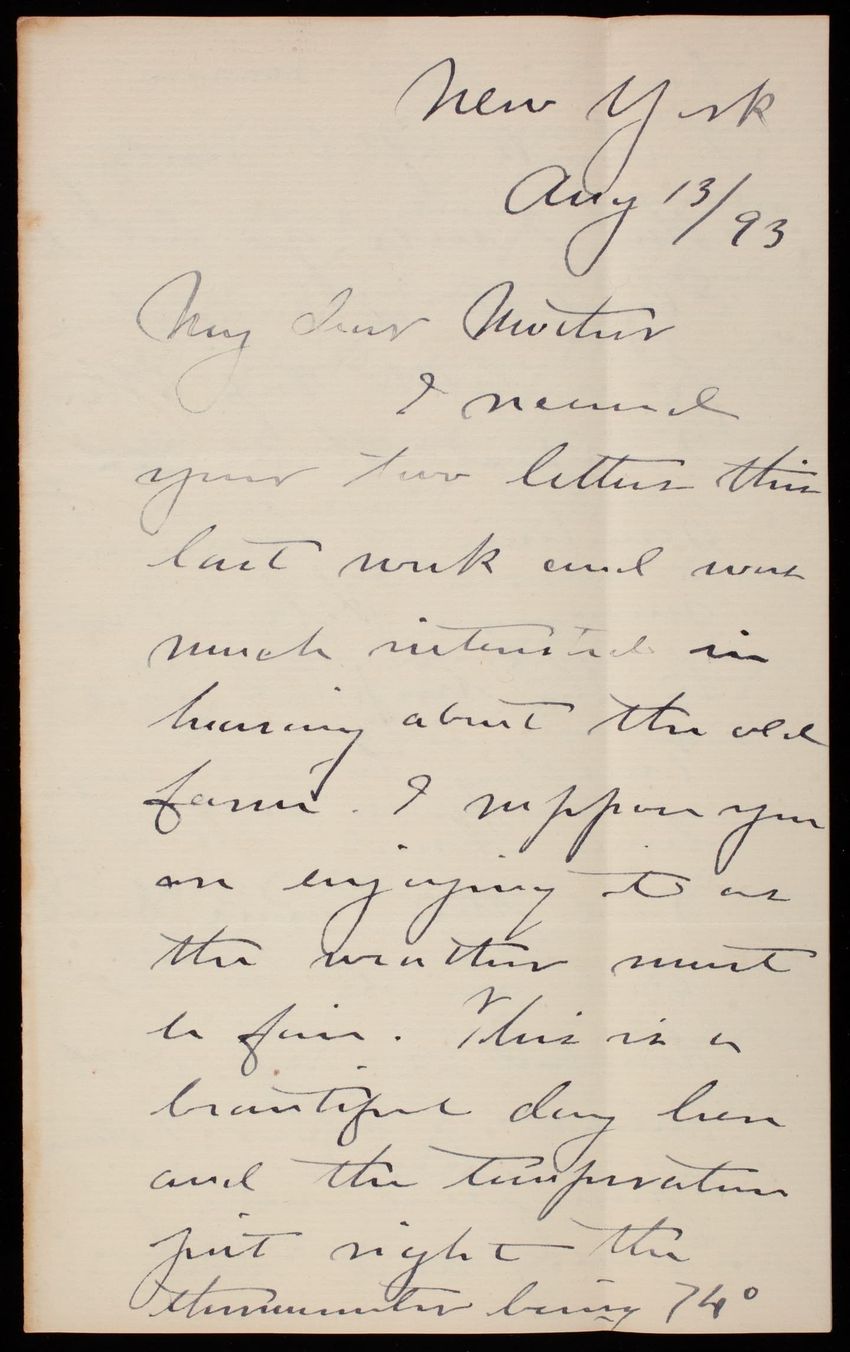 New York
Aug 13/93
My dear Mother
I received
your two letters this
last week and was
much interested in
hearing about the old
farm. I suppose you
are enjoying it as
the weather must
be fine. This is a
beautiful day here
and the temperature
just right the
thermometer being 74°